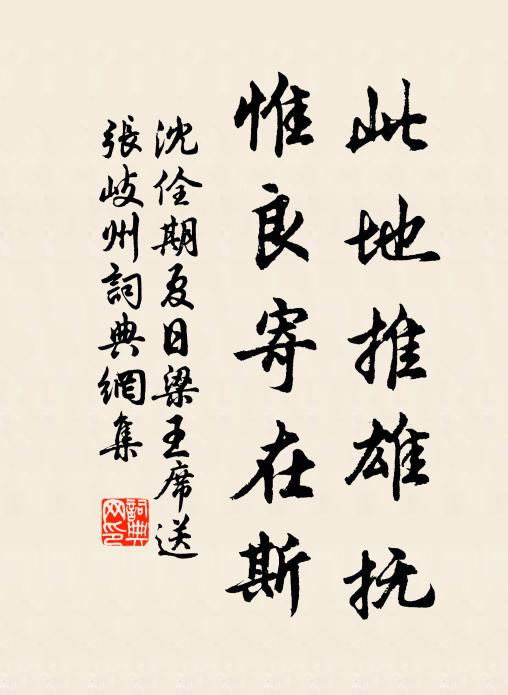 此地推雄抚
惟良寄在斯
沈佺期夏日梁王席送
張岐州詞典網集
詞典网印